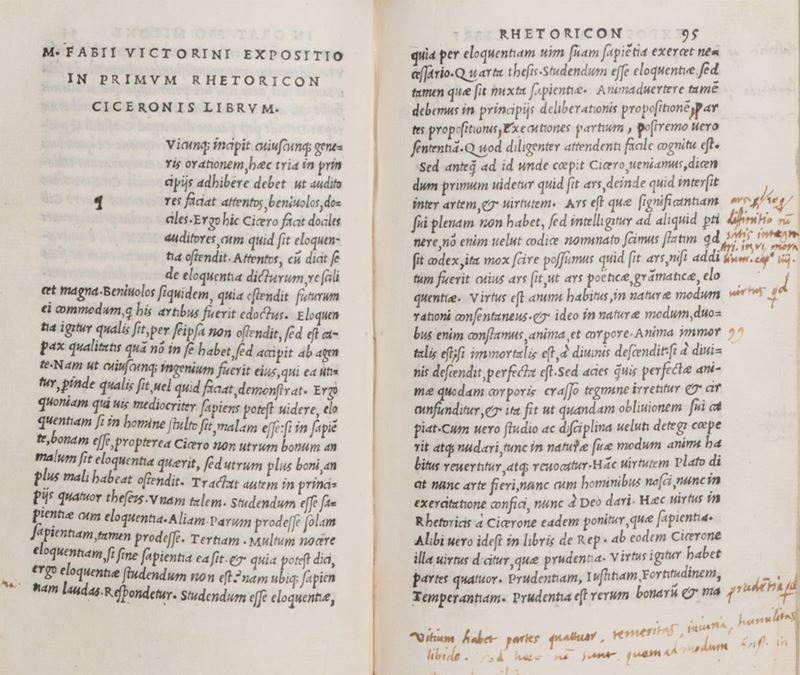 M. FABII VICTORINI EXPOSITIO
IN PRIMVM RHETORICON
CICERONIS LIBRVM.
Vicunq; incipit cuiuscunq; gene=
ris orationem, hæc tria in prin
cipijs adhibere debet ut audito
res faciat attentos, beniuolos, do=
ciles. Ergo hic Cicero facit dociles
auditores, cum quid sit eloquen=
tia ostendit. Attentos, cū dicit se
de eloquentia dicturum, re scili
cet magna. Beniuolos siquidem, quia ostendit futurum
ei commodum, q his artibus fuerit edoctus. Eloquen
tia igitur qualis sit, per seipsa non ostendit, sed est ca=
pax qualitatis quā nō in se habet, sed accipit ab agen
te. Nam ut cuiuscunq; ingenium fuerit eius, qui ea uti=
tur, pinde qualis sit, uel quid faciat, demonstrat. Ergo
quoniam qui uis mediocriter sapiens potest uidere, elo
quentiam si in homine stulto sit, malam esse: si in sapiē
te, bonam esse, propterea Cicero non utrum bonum an
malum sit eloquentia quærit, sed utrum plus boni, an
plus mali habeat ostendit. Tractat autem in princi=
pijs quatuor theseis. Vnam talem. Studendum esse sa=
pientiæ cum eloquentia. Aliam. Parum prodesse solam
sapientiam, tamen prodesse. Tertiam. Multum nocere
eloquentiam, si sine sapientia ea sit. & quia potest dici,
ergo eloquentiæ studendum non est? nam ubiq; sapien
tiam laudas. Respondetur. Studendum esse eloquentiæ,
RHETORICON 95
quia per eloquentiam uim suam sapiētia exercet ne=
cessario. Quarta thesis. Studendum esse eloquentiæ, sed
tamen quæ sit iuxta sapientiæ. Animaduertere tamē
debemus in principijs deliberationis propositionē, par
tes propositionis, executiones partium, postremo uero
sententiā. Quod diligenter attendenti facile cognitu est.
Sed anteq ad id unde cœpit Cicero, ueniamus, dicen
dum primum uidetur quid sit ars, deinde quid intersit
inter artem, & uirtutem. Ars est quæ significantiam
sui plenam non habet, sed intelligitur ad aliquid pti
nere, nō enim uelut codice nominato scimus statim qd
sit codex, ita mox scire possumus quid sit ars, nisi addi
tum fuerit cuius ars sit, ut ars poëticæ, grāmaticæ, elo
quentiæ. Virtus est animi habitus, in naturæ modum
rationi consentaneus. & ideo in naturæ modum, duo=
bus enim constamus, anima, et corpore. Anima immor
talis est; si immortalis est, à diuinis descendit: si à diui=
nis descendit, perfecta est. Sed acies quis perfectæ ani=
mæ quodam corporis crasso tegmine irretitur & cir
cunfunditur, & ita fit ut quandam obliuionem sui ca
piat. Cum uero studio ac disciplina ueluti detegi cœpe
rit atq; nudari, tunc in naturæ suæ modum animæ ha
bitus reuertitur, atq; reuocatur. Hāc uirtutem Plato di
cit nunc arte fieri, nunc cum hominibus nasci, nunc in
exercitatione confici, nunc à Deo dari. Hæc uirtus in
Rhetoricis à Cicerone eadem ponitur, quæ sapientia.
Alibi uero idest in libris de Rep. ab eodem Cicerone
illa uirtus dicitur, quæ prudentia. Virtus igitur habet
partes quatuor. Prudentiam, Iustitiam, Fortitudinem,
Temperantiam. Prudentia est rerum bonarū & ma
uirtus qd
99
prudētia qd
Vitium habet partes quattuor, temeritas, iniuria, humilitas
libido. Sed haec nō sunt, quemadmodum